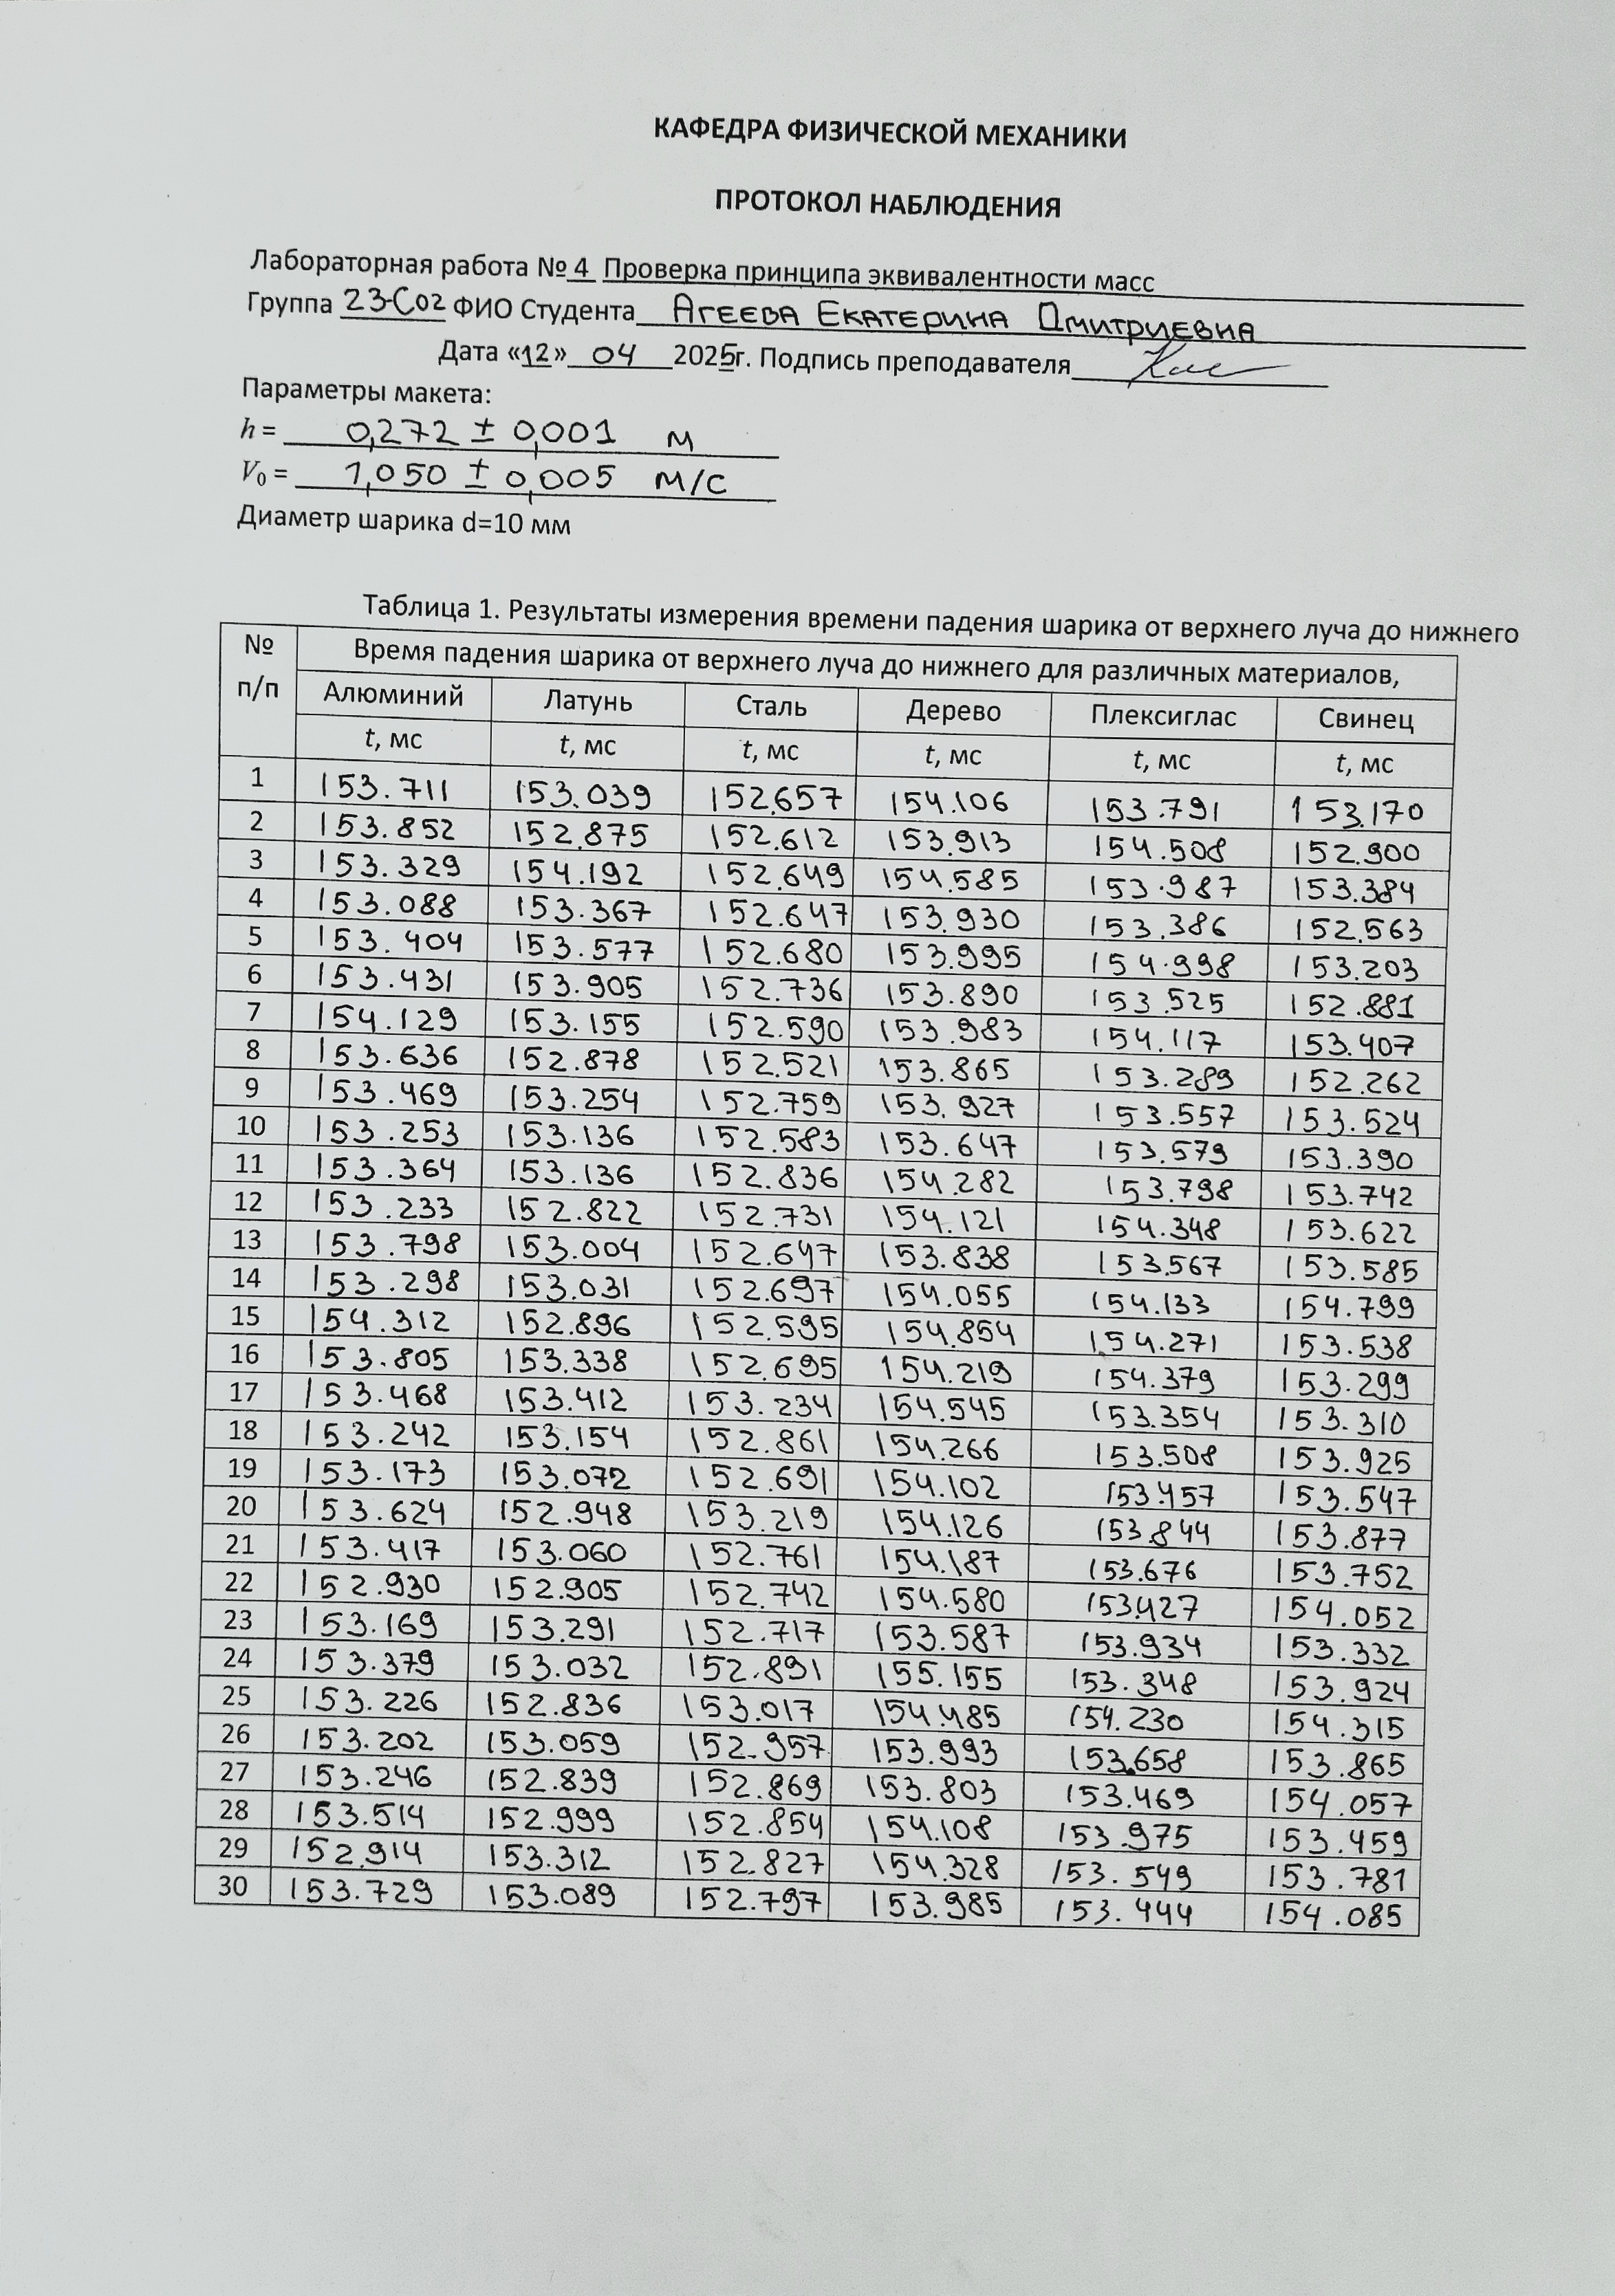 КАФЕДРА ФИЗИЧЕСКОЙ МЕХАНИКИ
ПРОТОКОЛ НАБЛЮДЕНИЯ
Лабораторная работа № 4 Проверка принципа эквивалентности масс
Группа 23-С02 ФИО Студента Агеева Екатерина Дмитриевна
Дата «12» 04 2025г. Подпись преподавателя
Параметры макета:
h = 0,272 ± 0,001 м
V0 = 1,050 ± 0,005 м/с
Диаметр шарика d=10 мм
Таблица 1. Результаты измерения времени падения шарика от верхнего луча до нижнего
№ п/п Время падения шарика от верхнего луча до нижнего для различных материалов,
Алюминий Латунь Сталь Дерево Плексиглас Свинец
t, мс t, мс t, мс t, мс t, мс t, мс
1 153.711 153.039 152.657 154.106 153.791 153.170
2 153.852 152.875 152.612 153.913 154.508 152.900
3 153.329 154.192 152.649 154.585 153.987 153.384
4 153.088 153.367 152.647 153.930 153.386 152.563
5 153.404 153.577 152.680 153.995 154.998 153.203
6 153.431 153.905 152.736 153.890 153.525 152.881
7 154.129 153.155 152.590 153.983 154.117 153.407
8 153.636 152.878 152.521 153.865 153.289 152.262
9 153.469 153.254 152.759 153.927 153.557 153.524
10 153.253 153.136 152.583 153.647 153.579 153.390
11 153.364 153.136 152.836 154.282 153.798 153.742
12 153.233 152.822 152.731 154.121 154.348 153.622
13 153.798 153.004 152.647 153.838 153.567 153.585
14 153.298 153.031 152.697 154.055 154.133 154.799
15 154.312 152.896 152.595 154.854 154.271 153.538
16 153.805 153.338 152.695 154.219 154.379 153.299
17 153.468 153.412 153.234 154.545 153.354 153.310
18 153.242 153.154 152.861 154.266 153.508 153.925
19 153.173 153.072 152.691 154.102 153.457 153.547
20 153.624 152.948 153.219 154.126 153.844 153.877
21 153.417 153.060 152.761 154.187 153.676 153.752
22 152.930 152.905 152.742 154.580 153.427 154.052
23 153.169 153.291 152.717 153.587 153.934 153.332
24 153.379 153.032 152.891 155.155 153.348 153.924
25 153.226 152.836 153.017 154.485 154.230 154.315
26 153.202 153.059 152.957 153.993 153.658 153.865
27 153.246 152.839 152.869 153.803 153.469 154.057
28 153.514 152.999 152.854 154.108 153.975 153.459
29 152.914 153.312 152.827 154.328 153.549 153.781
30 153.729 153.089 152.797 153.985 153.444 154.085